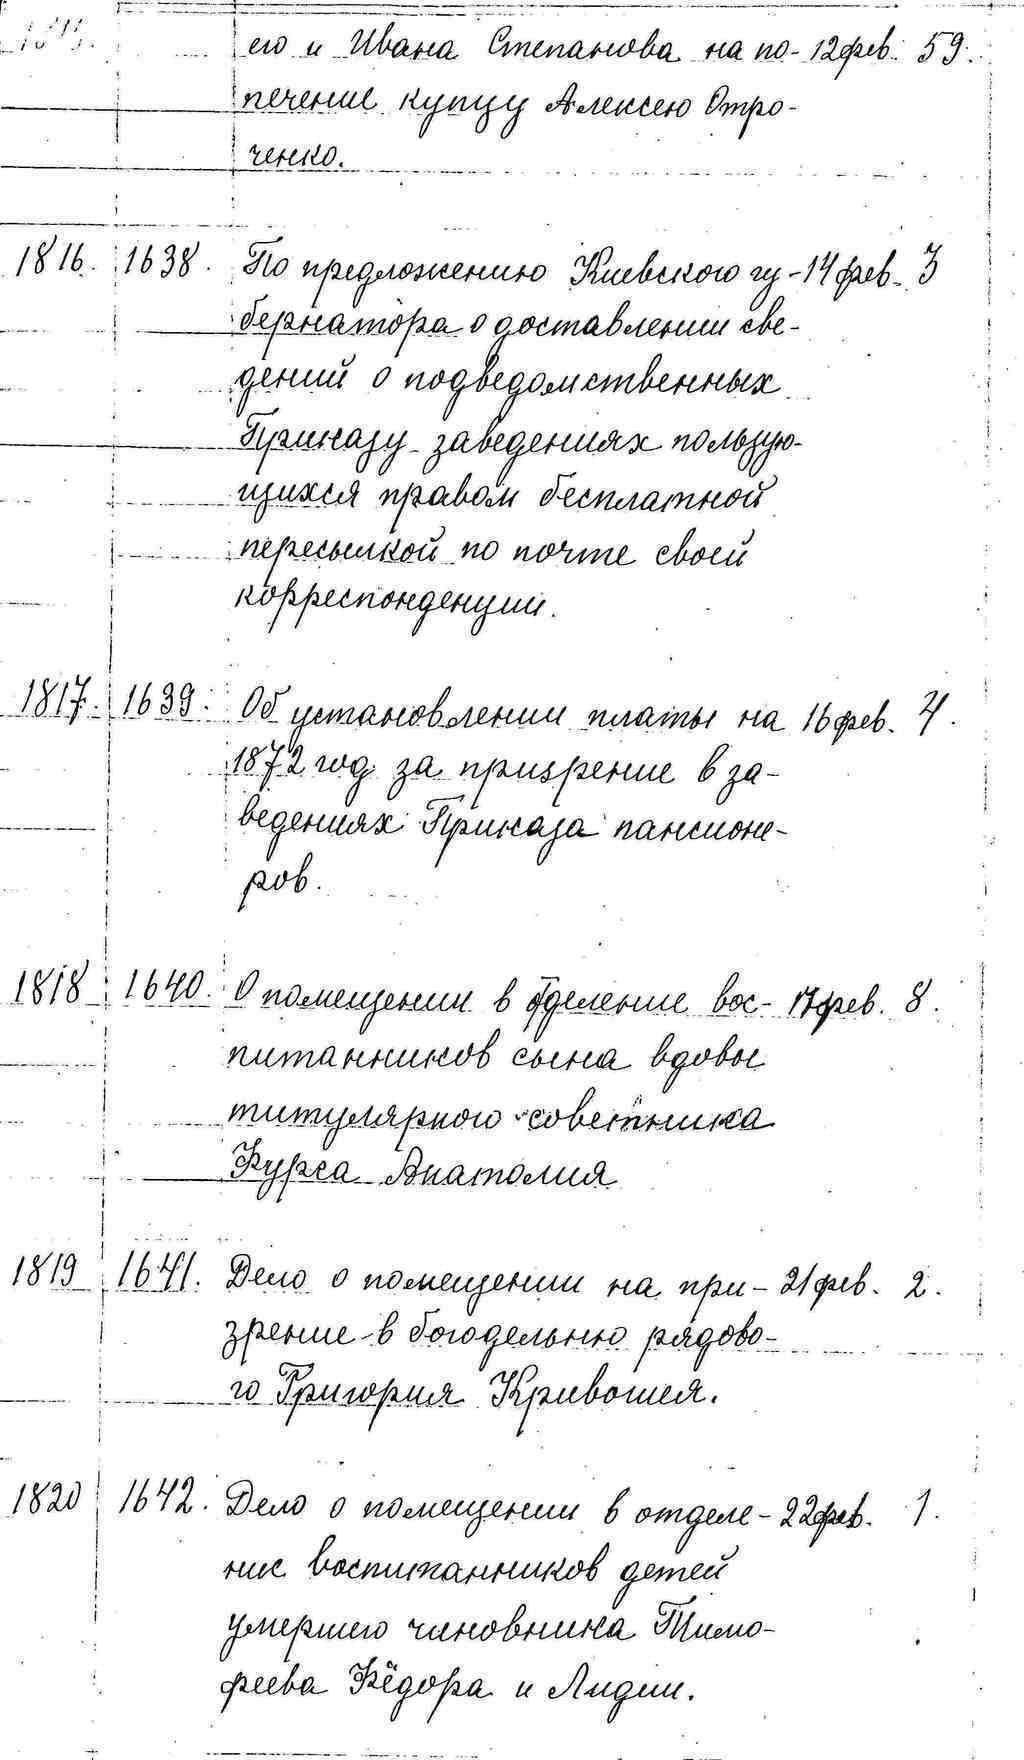 его и Ивана Степанова на по- 12 фев. 59.
печение купцу Алексею Отро-
ченко.
1816. 1638. По предложению Киевского гу- 14 фев. 3
бернатора о доставлении све-
дений о подведомственных
Приказу заведениях пользую-
щихся правом бесплатной
пересылкой по почте своей
корреспонденции.
1817. 1639. Об установлении платы на 16 фев. 4.
1872 год за призрение в за-
ведениях Приказа пансионе-
ров.
1818 1640. О помещении в отделение вос- 17 фев. 8.
питанников сына вдовы
титулярного советника
Фурса Анатолия
1819 1641. Дело о помещении на при- 21 фев. 2.
зрение в богодельню рядово-
го Григория Кривошея.
1820 1642. Дело о помещении в отделе- 22 фев. 1.
ние воспитанников детей
умершего чиновника Тимо-
феева Фёдора и Лидии.